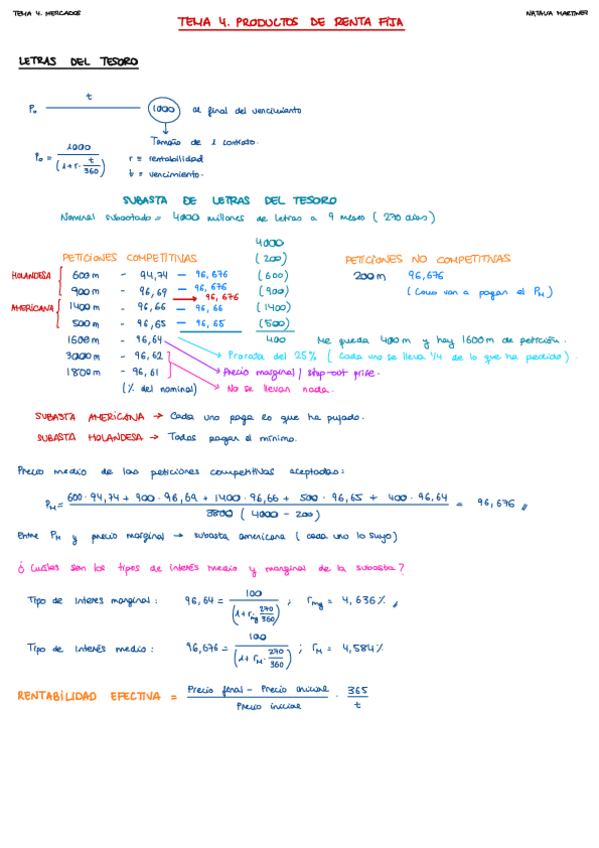 TEMA 4. MERCADOS
NATALIA MARTINEZ
TEMA 4. PRODUCTOS DE RENTA FIJA
LETRAS DEL TESORO
t
P₀ 1000 al final del vencimiento
Tamaño de 1 contrato.
P₀ = 1000 / (1+r· t/360)
r = rentabilidad
t = vencimiento.
SUBASTA DE LETRAS DEL TESORO
Nominal subastado = 4000 millones de letras a 9 meses (270 días)
4000
PETICIONES COMPETITIVAS (200) PETICIONES NO COMPETITIVAS
HOLANDESA 600 m - 94,74 — 96,676 (600) 200 m 96,676
900 m - 96,69 — 96,676 (900) (Como van a pagar el Pₘ)
→ 96,676
AMERICANA 1400 m - 96,66 — 96,66 (1400)
500 m - 96,65 — 96,65 (500)
1600 m - 96,64 400 Me queda 400m y hay 1600m de petición.
3000 m - 96,62 Prorrata del 25% (Cada uno se lleva 1/4 de lo que ha pedido).
1800 m - 96,61 Precio marginal / stop-out price.
(% del nominal) No se llevan nada.
SUBASTA AMERICANA → Cada uno paga lo que ha pujado.
SUBASTA HOLANDESA → Todos pagan el mínimo.
Precio medio de las peticiones competitivas aceptadas:
Pₘ = 600·94,74 + 900·96,69 + 1400·96,66 + 500·96,65 + 400·96,64 / 3800 (4000 - 200) = 96,676
Entre Pₘ y precio marginal → subasta americana (cada uno lo suyo)
¿Cuáles son los tipos de interés medio y marginal de la subasta?
Tipo de interes marginal: 96,64 = 100 / (1+rmg 270/360) ; rmg = 4,636%
Tipo de interés medio: 96,676 = 100 / (1+rM· 270/360) ; rM = 4,584%
RENTABILIDAD EFECTIVA = Precio final - Precio inicial / Precio inicial · 365 / t